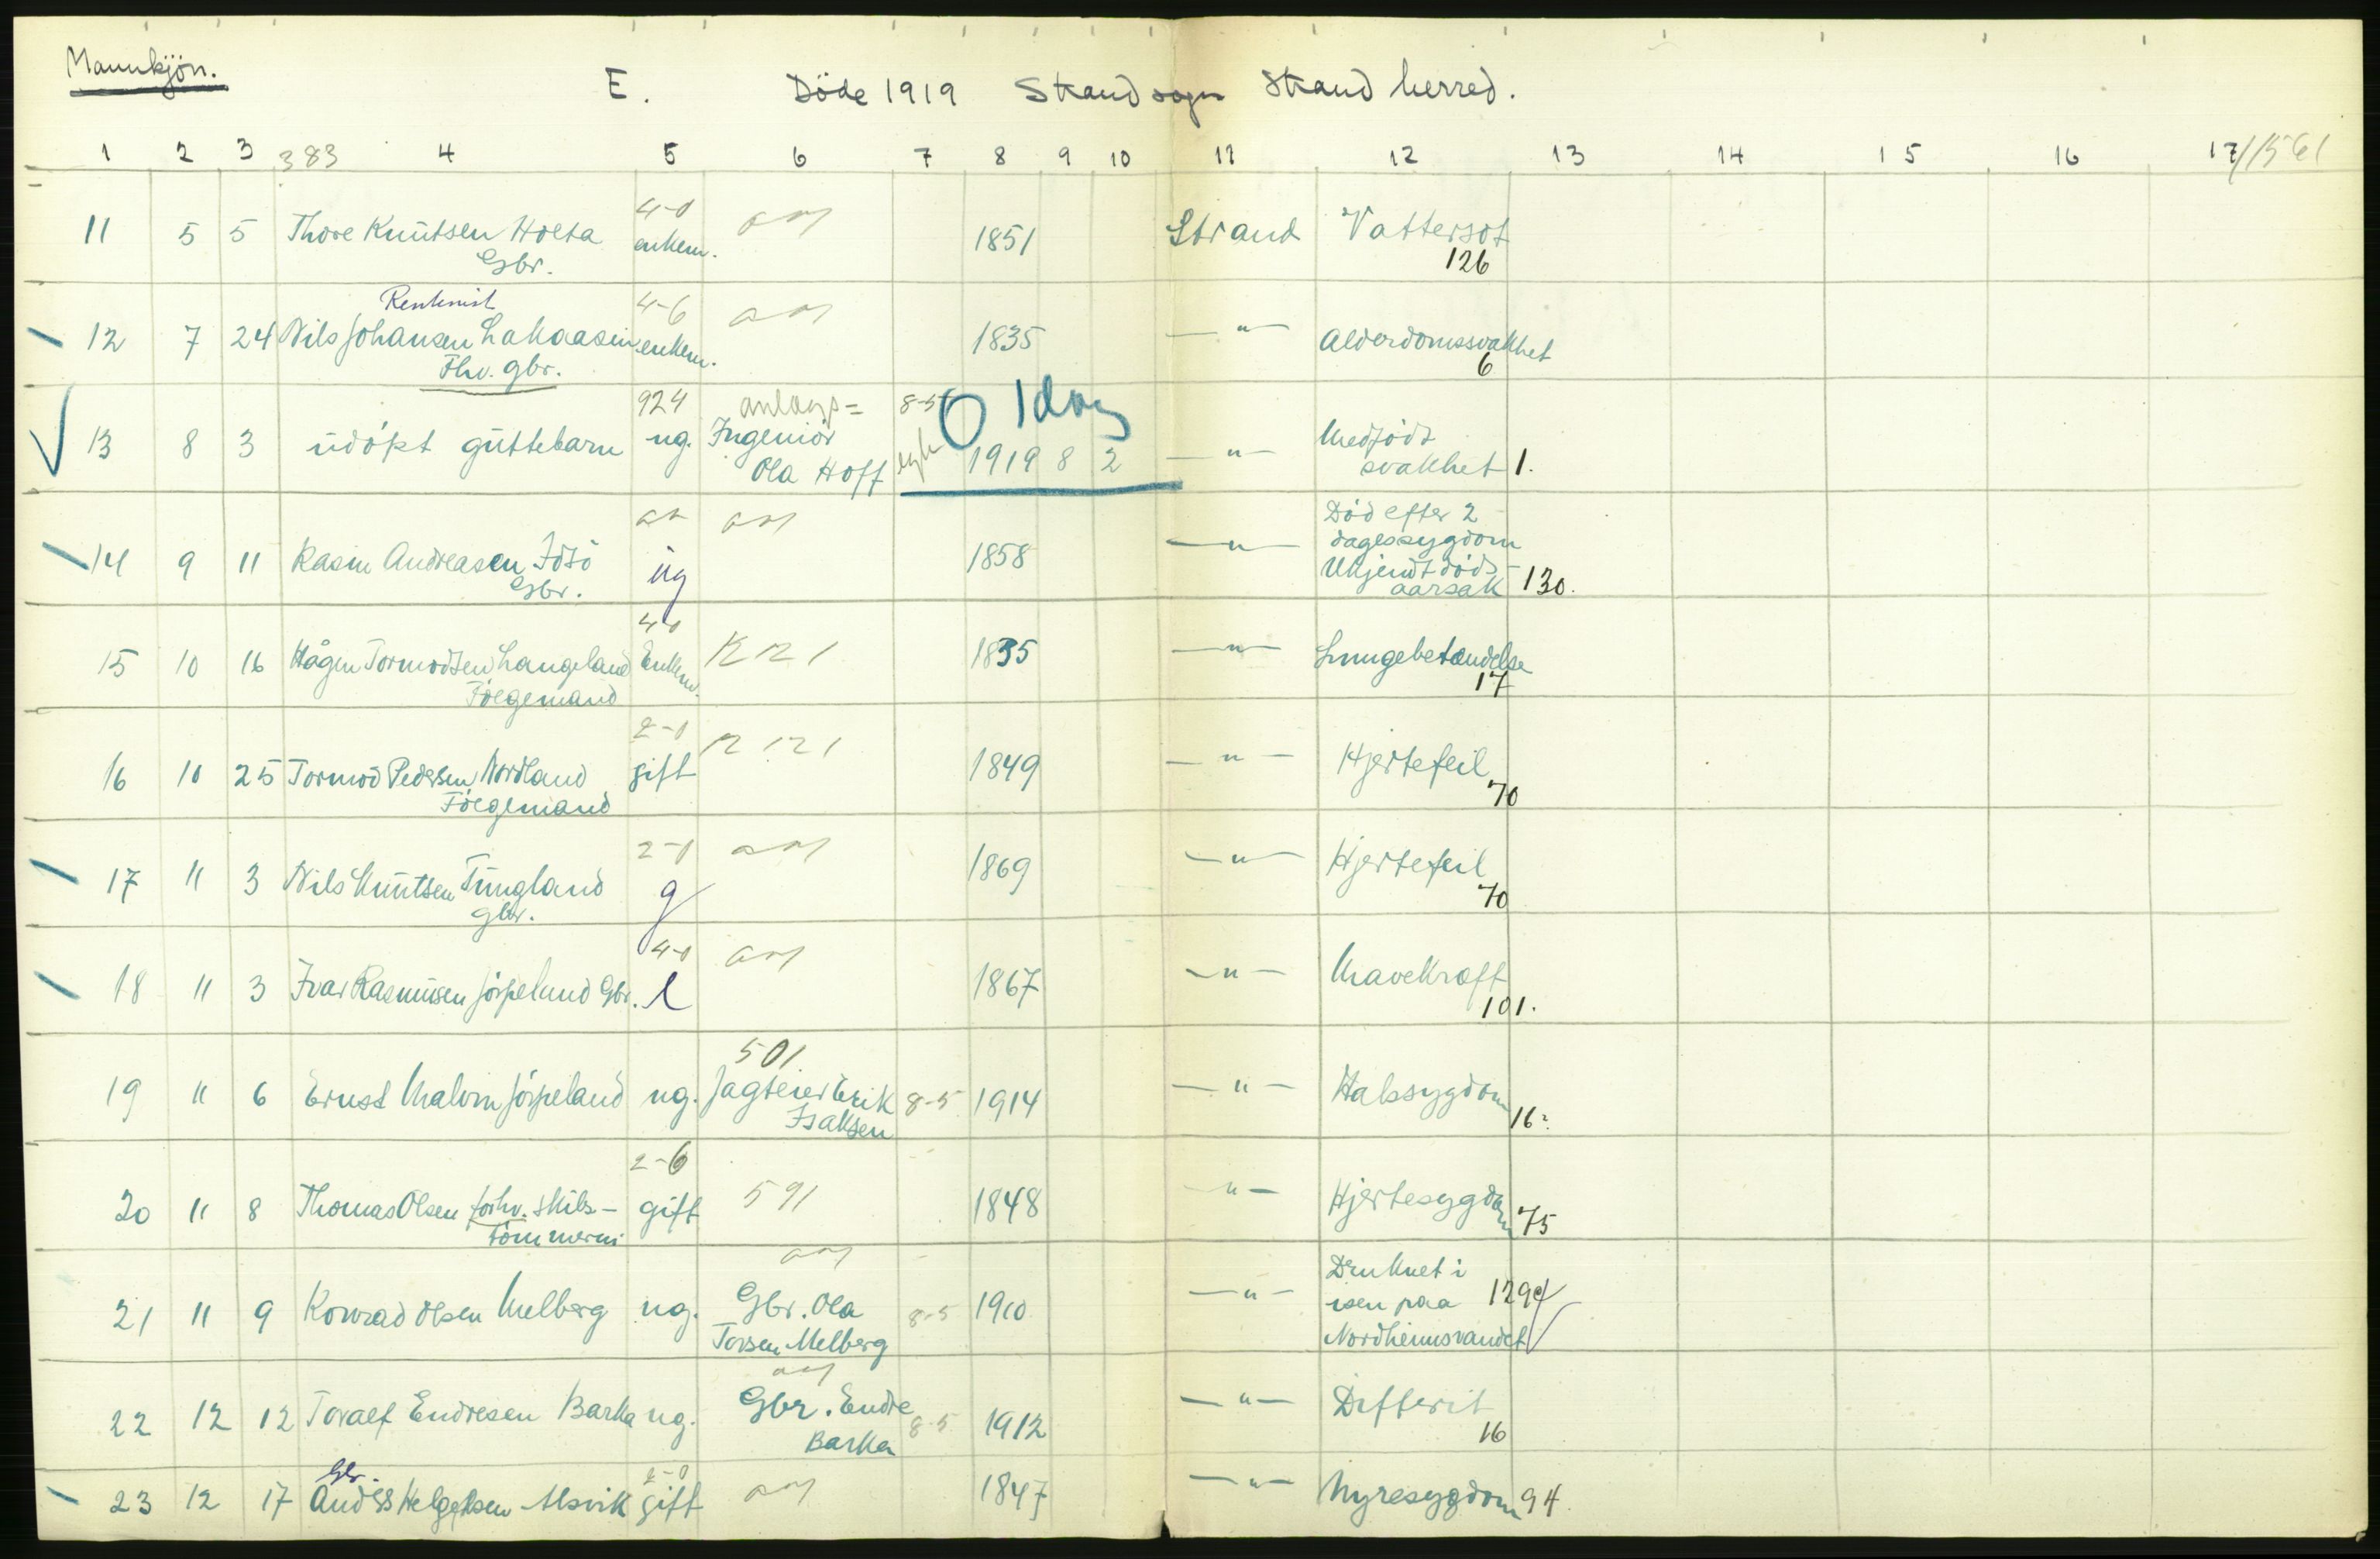 Mannkjön.
E. Döde 1919 Strand sogn Strand herred.
1 2 3 383 4 5 6 7 8 9 10 11 12 13 14 15 16 17/1561
11 5 5 Thore Knutsen Holta Gbr. 4-0 enkem. 1851 Strand Vattersot 126
Rentenist
12 7 24 Nils Johansen Lekaasen Fhv. gbr. 4-6 enkem. 1835 —"— Alderdomssvakhet 6
13 8 3 udöpt guttebarn 924 ug. anlægs= Ingeniör Ola Hoff 8-5 egte 0 1 dag 1919 8 2 —"— Medfödt svakhet 1.
14 9 11 Rasm Andreasen Idsö Gbr. ug 1858 —"— Död efter 2 dagessygdom Ukjendt döds- aarsak 130.
15 10 16 Hågen Tormodsen Langeland Fölgemand 4-0 Enkem. 1835 —"— Lungebetændelse 17
16 10 25 Tormod Pedersen Nordland Fölgemand 2-0 gift 1849 —"— Hjertefeil 70
17 11 3 Nils Knutsen Tungland gbr. 2-0 g 1869 —"— Hjertefeil 70
18 11 3 Ivar Rasmusen Jörpeland Gbr. 4-0 e 1867 —"— Mavekræft 101.
19 11 6 Ernst Malvin Jörpeland ug. 501 Jagteier Erik Isaksen 8-5 1914 —"— Halssygdom 16?
20 11 8 Thomas Olsen forhv. skibs- tömmerm 2-6 gift 591 1848 —"— Hjertesygdom 75
21 11 9 Konrad Olsen Melberg ug. Gbr. Ola Torsen Melberg 8-5 1910 —"— Druknet i isen paa Nordheimsvandet 129d
22 12 12 Toralf Endresen Barka ug. Gbr. Endre Barka 8-5 1912 —"— Difterit 16
Gbr.
23 12 17 Anders Helgesen Alsvik 2-0 gift 1847 —"— Nyresygdom 94.